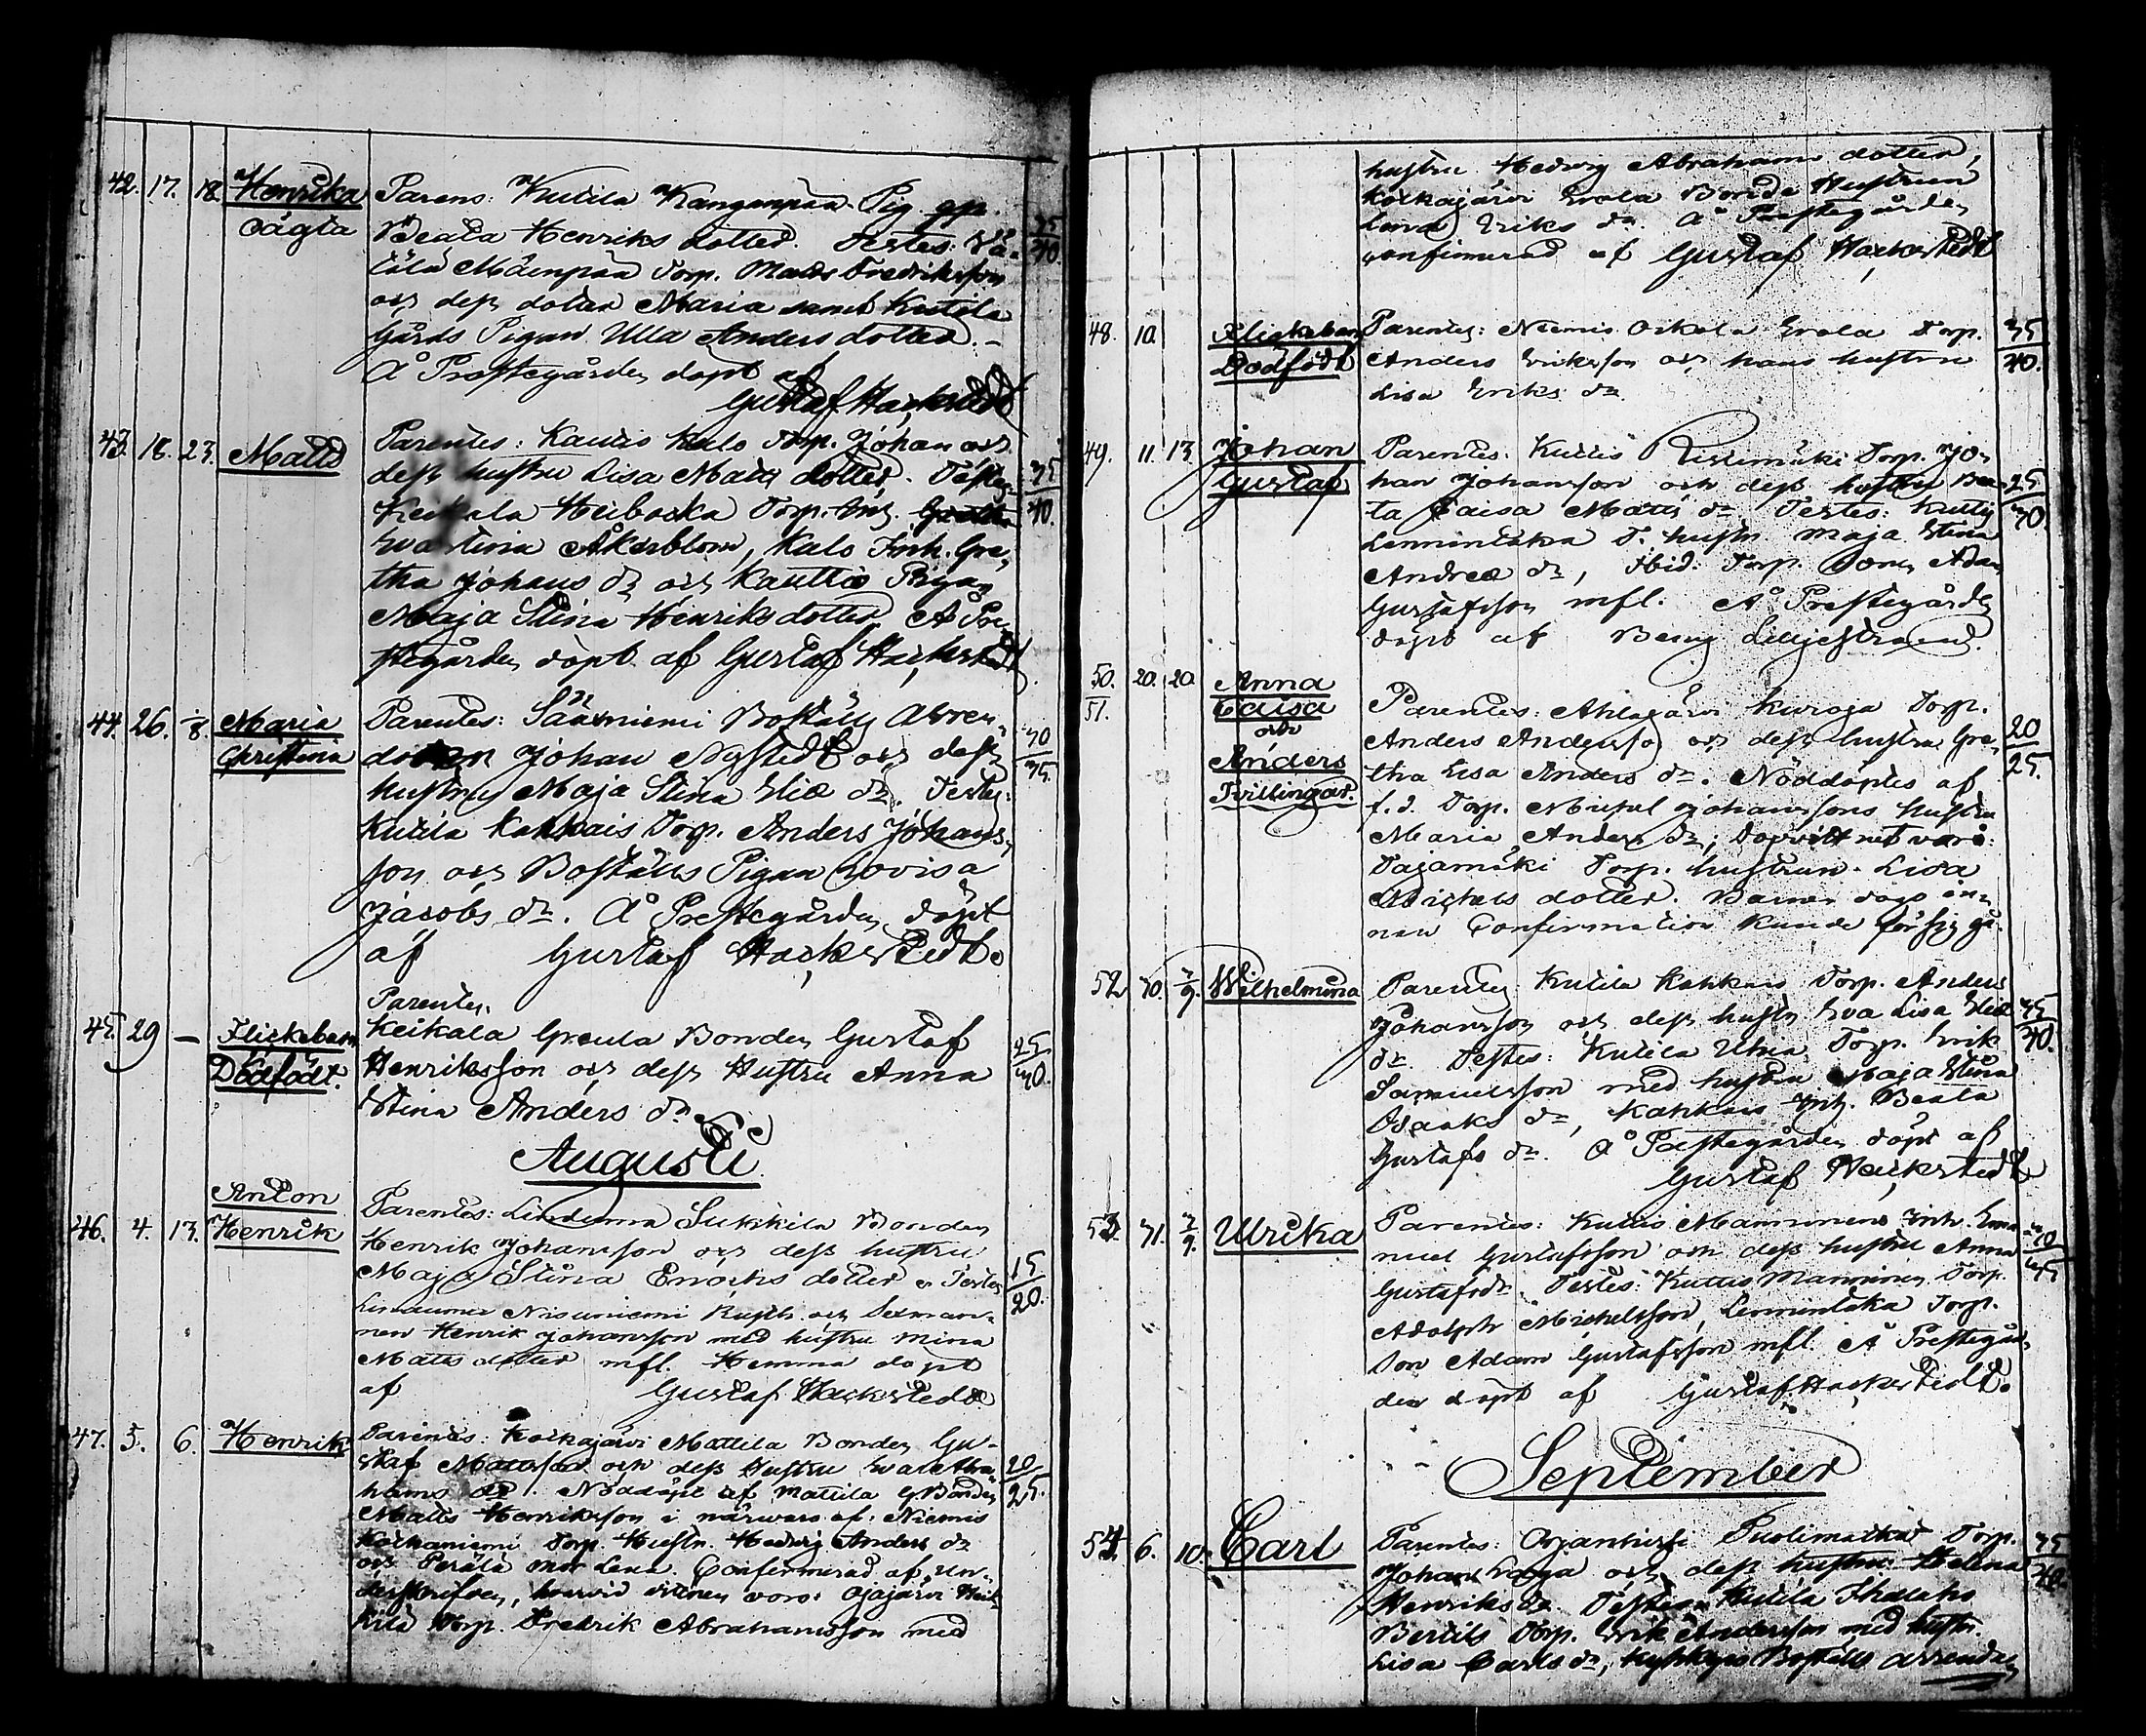 42. 17. 18. Henrika Parens: Kutila Kangenpää Pig.
oägta Beata Henriks dotter. Testes: 35/40
Mäenpää Torp. Matts Fredriksson
och dess dotter Maria samt Kutila
Gårds Pigan Ulla Anders dotter. –
Å Prestegården döpt af
Gustaf Hackstedt
43. 18. 23. Matts Parentes: Kautis Kulo Torp. Johan och
dess hustru Lisa Matts dotter. Testes 35/40.
Keikala Torp. Enk.
Stina Åkerblom, Kulo Inh. Gre-
tha Johans dr och Kauttis Pigan
Maja Stina Henriks dotter Å Pre-
stegården döpt af Gustaf Hackstedt
44. 26. 1/8. Maria Parentes: Sääxniemi Boställs Arren-
Christina datorn Johan Nystedt och dess 70/75.
hustru Maja Stina Eliæ dr. Testes:
Kutila Kakkais Torp. Anders Johans-
son och Boställs Pigan Lovisa
Jacobs dr. Å Prestegården döpt
af Gustaf Hackstedt.
Parentes.
45. 29 – Flickebarn Keikala Greula Bonden Gustaf 25/30.
Dödfödt. Henriksson och dess Hustru Anna
Stina Anders dr
Augusti
Anton
46. 4. 13. Henrik Parentes: Lindema Sukkila Bonden
Henrik Johansson och dess hustru
Maja Stina Enochs dotter. Testes 15/20.
Nisuniemi Rusth. och Sexman-
nen Henrik Johansson med hustru Mina
Matts dotter mfl. Hemma döpt
af Gustaf Hackstedt
47. 5. 6. Henrik Parentes: Koikajärvi Mattila Bonden Gu-
staf Mattsson och dess Hustru Eva Abra- 20/25.
hams dr. Nöddöpt af Mattila G. Bonden
Matts Henriksson i närvaro af: Niemis
Torp. Hustr. Hedvig Anders dr
och Perälä mor Lena. Confirmerad af un-
derskrifven, hvarvid vittnen voro: Ojajärvi Heik-
kilä Torp. Fredrik Abrahamsson med
hustru Hedvig Abrahams dotter,
Koikajärvi Erola Bonde Hustrun
Lovisa Eriks dr. Å Prestegården
confirmerad af Gustaf Hackstedt
48. 10. Flickebarn Parentes: Niemis Oikola Erola Torp. 35/40.
Dödfödt Anders Eriksson och hans hustru
Lisa Eriks dr
49. 11. 13 Johan Parentes: Kuttis Ristimäki Torp. Jo-
Gustaf han Johansson och dess hustru Bea- 25/30.
ta Caisa Matts dr Testes: Kuttis
Lemmintäka T. hustr. Maja Stina
Andreæ dr, Ibid: Torp. Sonen Adam
Gustafsson mfl. Å Prestegården
döpt af Benj Lilljestrand.
50. 20. 20. Anna
51. Caisa Parentes: Ahlajärvi Kuroja Torp.
och Anders Andersson och dess hustru Gre- 20/25.
Anders tha Lisa Anders dr. Nöddöptes af
Tvillingar. f. d. Torp. Michel Johanssons hustru
Maria Anders dr; Dopvittnet voro:
Tajamäki Torp. hustrun Lisa
Michels dotter. Barnen dogo in-
nan Confirmation kunde försiggå.
52 30. 7/9. Wilhelmina Parentes: Kutila Kakkais Torp. Anders
Johansson och dess hustru Eva Lisa Eliæ 35/40.
dr. Testes: Kutila Uhia Torp. Erik
Samuelsson med hustru Maja Stina
Isaaks dr, Kakkais Inh. Beata
Gustafs dr. Å Prestegården döpt af
Gustaf Hackstedt
53. 31. 7/9. Ulrika Parentes: Kuttis Manninens Inh. Ema-
nuel Gustafsson och dess hustru Anna 40/45
Gustafsdr. Testes: Kuttis Manninen Torp.
Adolph Michelsson, Lemmintäka Torp.
Son Adam Gustafsson mfl. Å Prestegår-
den döpt af Gustaf Hackstedt.
September
54. 6. 10. Carl Parentes: Orjanhirsi Puolimatka Torp. 35/40.
Johan och dess hustru Helena
Henriks dr Testes: Kutila Ihalahs
Bertils Torp. Erik Andersson med hustr.
Lisa Carls dr, Boställs arrenda-